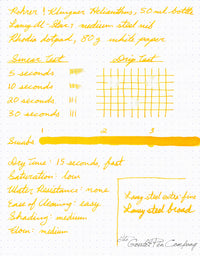 Rohrer & Klingner Helianthus, 50 ml bottle
Lamy Al-Star: medium steel nib
Rhodia dotpad, 80 g white paper
Smear Test
Drip Test
5 seconds
10 seconds
20 seconds
30 seconds
Swabs
1
2
3
Dry Time: 15 seconds, fast
Saturation: low
Water Resistance: none
Ease of Cleaning: easy
Shading: medium
Flow: medium
Lamy steel extra-fine
Lamy steel broad
The Goulet Pen Company